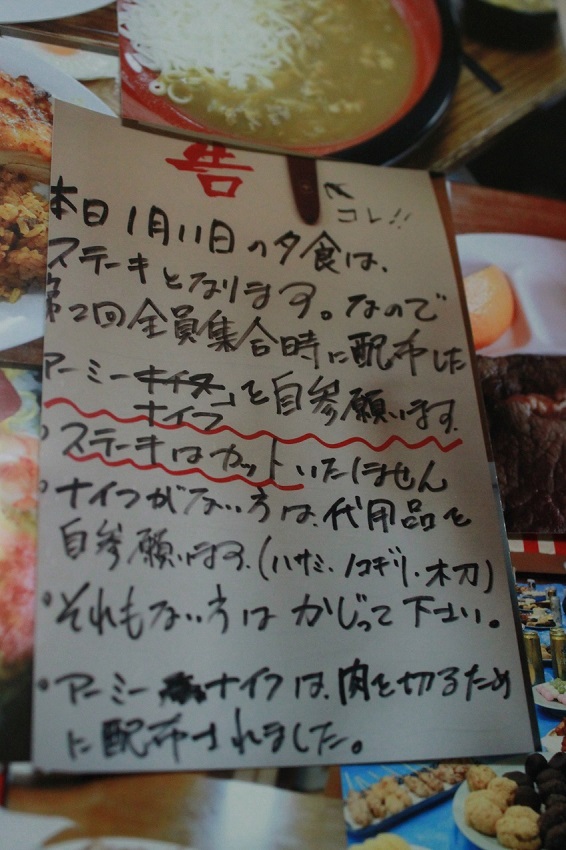 告
コレ!!
本日1月11日の夕食は、
ステーキとなります。なので
第2回全員集合時に配布した
アーミーナイフを自参願います。
・ステーキはカットいたしません
・ナイフがない方は、代用品を
自参願います。(ハサミ・ノコギリ・木刀)
・それもない方はかじって下さい。
・アーミーナイフは、肉を切るため
に配布されました。